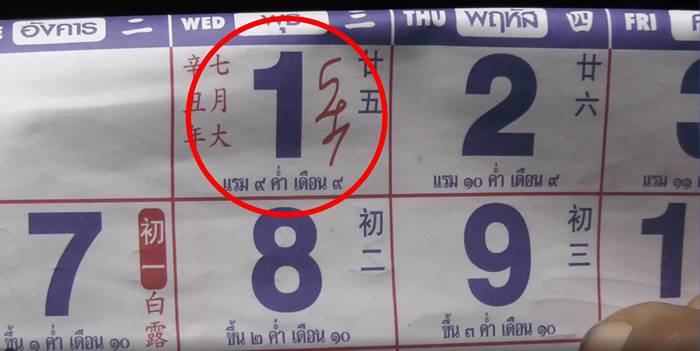 อังคาร 二 WED พุธ 三 THU พฤหัส 四 FRI
辛丑年 七月大 1 廿五 2 廿六
แรม ๙ ค่ำ เดือน ๙ แรม ๑๐ ค่ำ เดือน ๙ แรม ๑๑
7 初一 白露 8 初二 9 初三 1
ขึ้น ๑ ค่ำ เดือน ๑๐ ขึ้น ๒ ค่ำ เดือน ๑๐ ขึ้น ๓ ค่ำ เดือน ๑๐